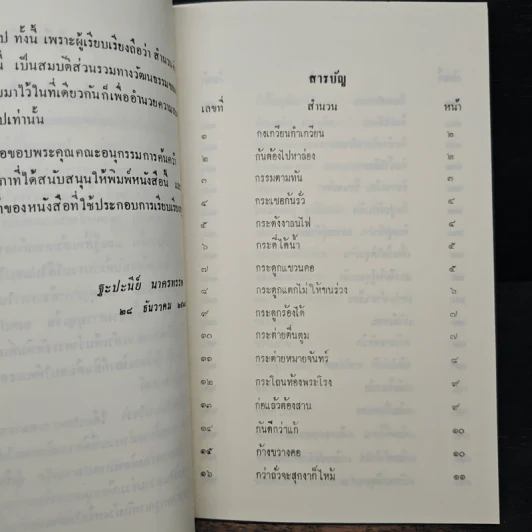 ป ทั้งนี้ เพราะผู้เรียบเรียงถือว่า สำนวน
นี้ เป็นสมบัติส่วนรวมทางวัฒนธรรม
มมาไว้ในที่เดียวกันก็เพื่ออำนวยความ
ปเท่านั้น
อขอบพระคุณคณะอนุกรรมการค้นคว้า
ภาที่ได้สนับสนุนให้พิมพ์หนังสือนี้ และ
าของหนังสือที่ใช้ประกอบการเรียบเรียง
ฐะปะนีย์ นาครทรรพ
๒๔ ธันวาคม
สารบัญ
เลขที่ สำนวน หน้า
๑ กงเกวียนกำเกวียน ๒
๒ กันต้องไปหาล่อง ๒
๓ กรรมตามทัน ๓
๔ กระเชอก้นรั่ว ๔
๕ กระดังงาลนไฟ ๔
๖ กระดี่ได้น้ำ ๕
๗ กระดูกแขวนคอ ๕
๘ กระดูกแตกไม่ให้ขนร่วง ๖
๙ กระดูกร้องได้ ๗
๑๐ กระต่ายตื่นตูม ๗
๑๑ กระต่ายหมายจันทร์ ๘
๑๒ กระโถนท้องพระโรง ๙
๑๓ ก่อแล้วต้องสาน ๙
๑๔ กันดีกว่าแก้ ๑๐
๑๕ ก้างขวางคอ ๑๐
๑๖ กว่าถั่วจะสุกงาก็ไหม้ ๑๑